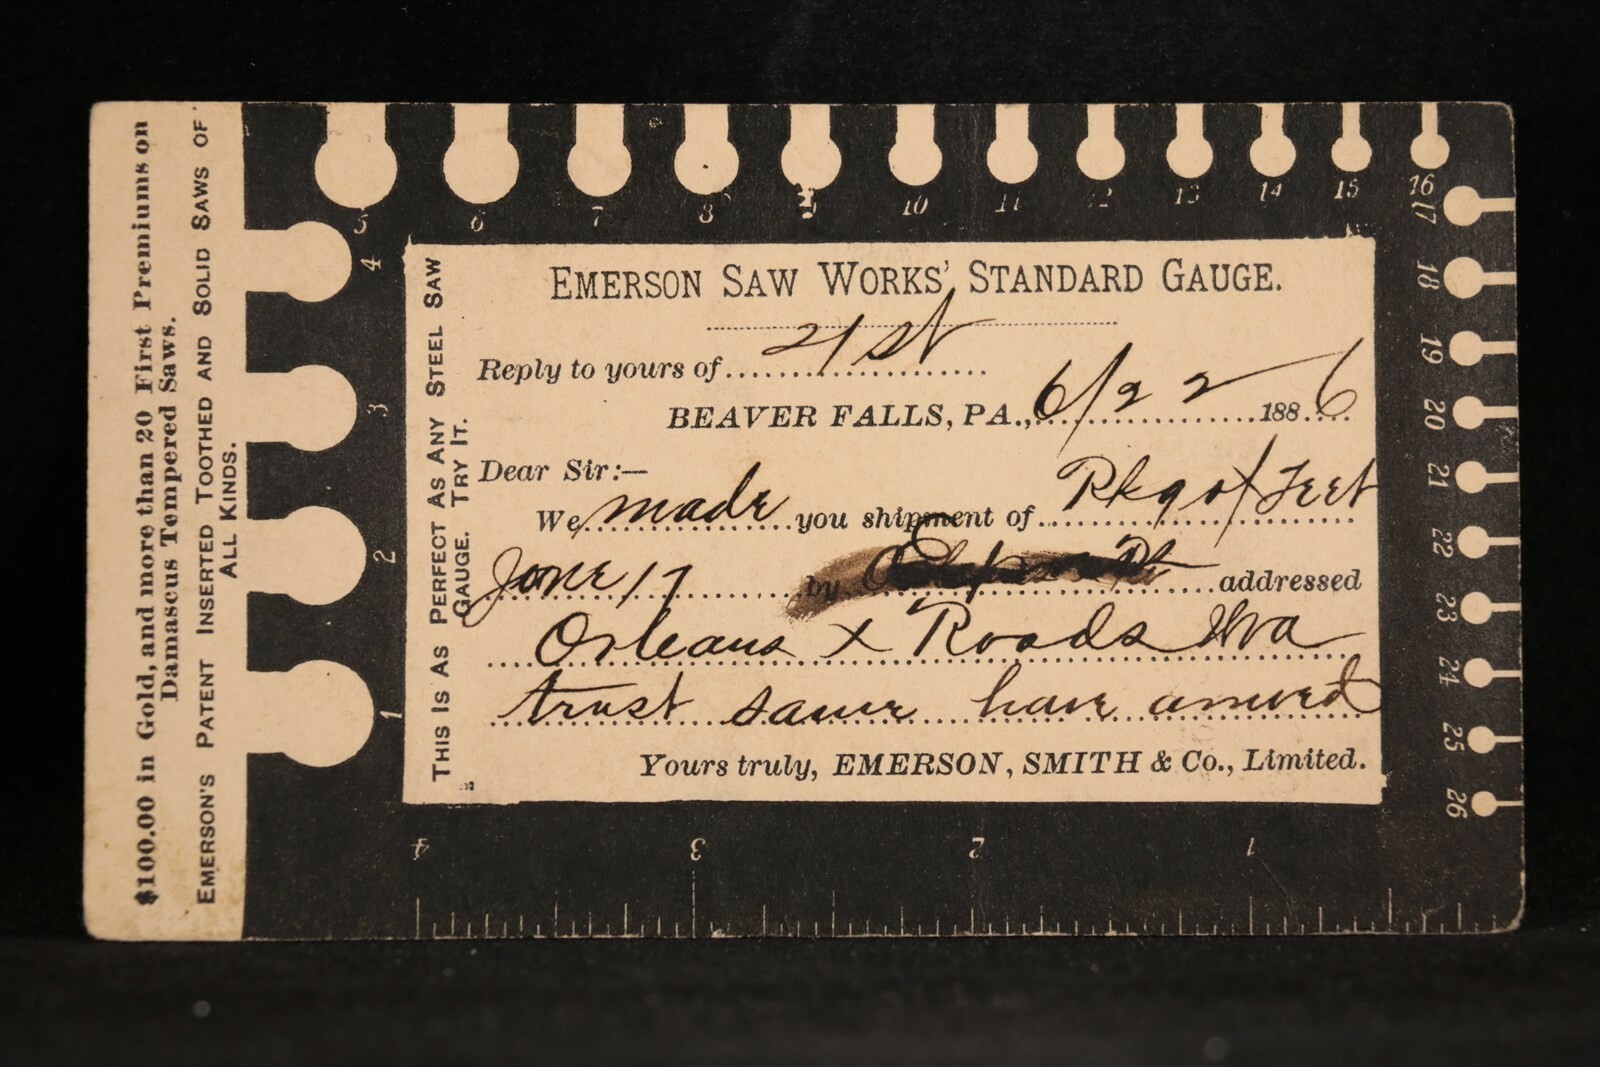 $100.00 in Gold, and more than 20 First Premiums on
Damascus Tempered Saws.
EMERSON'S PATENT INSERTED TOOTHED AND SOLID SAWS OF
ALL KINDS.
5 6 7 8 9 10 11 12 13 14 15 16
4
3
2
1
17
18
19
20
21
22
23
24
25
26
THIS IS AS PERFECT AS ANY STEEL SAW
GAUGE. TRY IT.
EMERSON SAW WORKS' STANDARD GAUGE.
Reply to yours of 21st
BEAVER FALLS, PA., 6/22 1886
Dear Sir:—
We made you shipment of Pkg of Teet
June 17 by addressed
Orleans x Roads WVa
trust same have arrived
Yours truly, EMERSON, SMITH & Co., Limited.
4 3 2 1